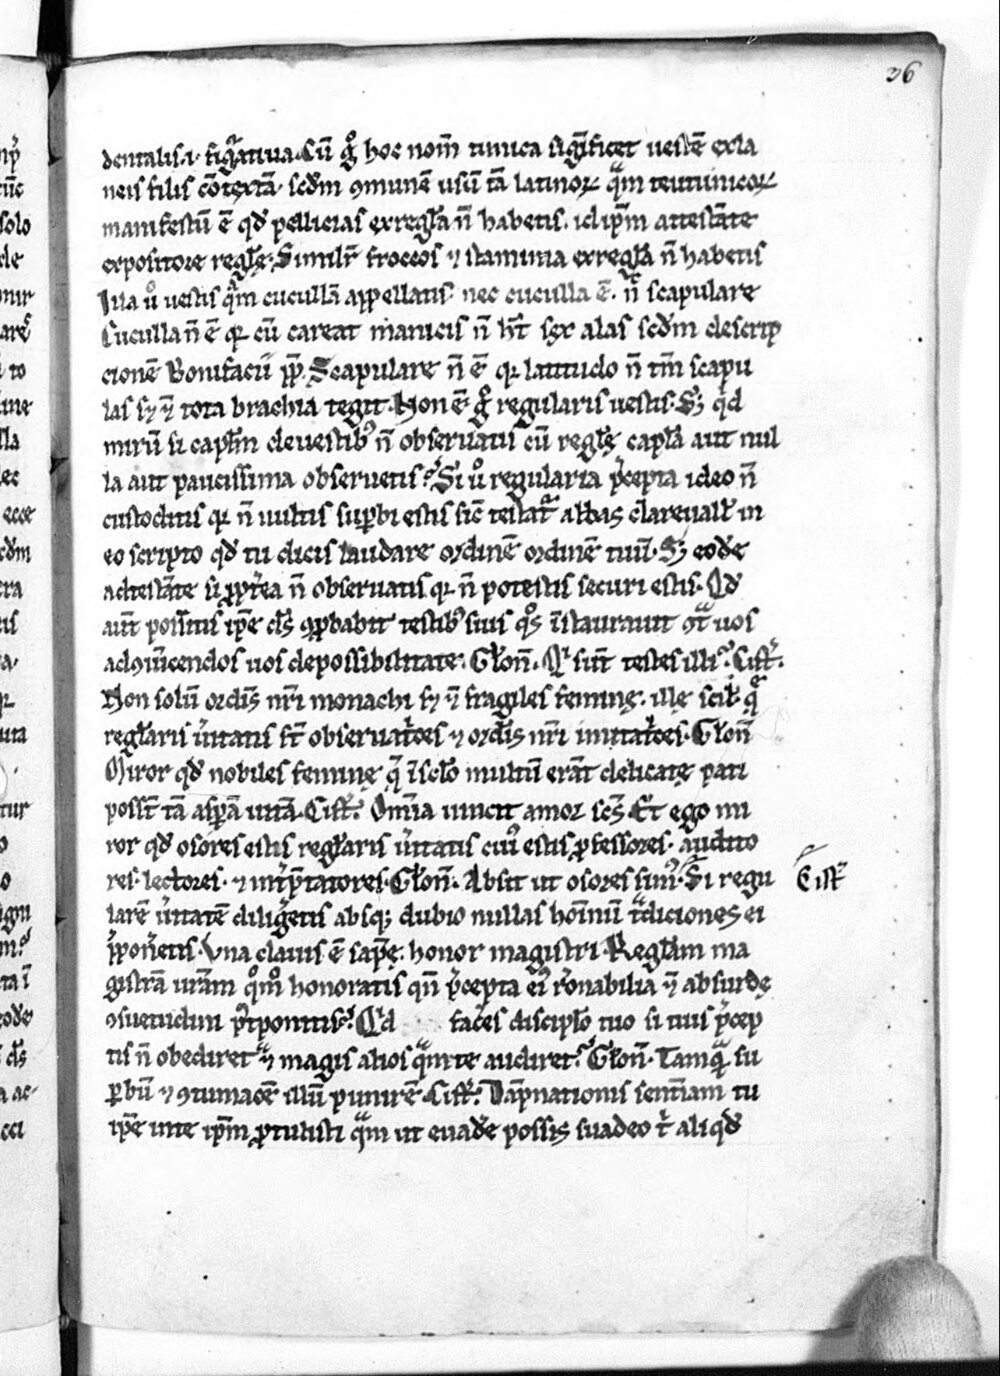 36
dentalis .i. figuͣtiua. Cū gͦ hoc nom̄ tunica sigͣficet uestē exla
neis filis cōtextā. scdm ꝯmunē usū tā latinoꝝ qͣm teutunicoꝝ
manifestū ē qd pellicias exregl̄a n̄ habetis. id ip̄m attestāte
expositore regl̄ę. Similr̄ froccos ⁊ stamina exregl̄a n̄ habetis
Illa uͦ uestis qͣm cucullā appellatis. nec cuculla ē. nͨ scapulare
Cuculla n̄ ē qꝛ cū careat manicis n̄ ht̄ sex alas scdm descrip
cionē Bonifacii pp̄. Scapulare n̄ ē qꝛ latitudo n̄ tm̄ scapu
las sꝫ ⁊ tota brachia tegit. Non ē gͦ regularis uestis. Sꝫ qͥd
mirū si capl̄m deuestibꝰ n̄ obseruatis cū regl̄ę capl̄a aut nul
la aut paucissima obseruetis? Si uͦ regularia p̄cepta ideo n̄
custoditis qꝛ n̄ uultis suꝑbi estis sic̄ testatͬ abbas clareuall̄ in
eo scripto qd tu dicis laudare ordinē ordinē tuū. Sꝫ eodē
adtestāte si ꝓpt̄ea n̄ obseruatis qꝛ n̄ potestis securi estis. Qd
aut̄ possitis ip̄e ds̄ ꝯꝓbabit testibꝰ suis qͦs īstaurauit ꝯtͣ uos
ad ꝯuīcendos uos depossibilitate. Clōn̄. Qͥ sun̄t testes illi? Cist̄.
Non solū ordīs nr̄i monachi sꝫ ⁊ fragiles feminę. illę scil̄. qͣ
regl̄aris ūitatis st̄ obseruatͦces ⁊ ordīs nr̄i imitatͦces. Clōn̄
Miror qd nobiles feminę qͣ īsclo multū erāt delicatę pati
posst̄ tā aspͣā uitā. Cist̄. Om̄ia uincit amor scs̄. Et ego mi
ror qd osores estis regl̄aris ūitatis cuiꝰ estis ꝓfessores. audito
res. lectores. ⁊ int̄p̄tatores. Clōn̄. Absit ut osores simꝰ. Si regu
Cist̄
larē ūitatē diligetis absqꝫ dubio nullas hoīnū tͣdiciones ei
p̄ponetis. Vna clauis ē sap̄ię. honor magistri. Regl̄am ma
gistrā ur̄am qͦmͦ honoratis qn̄ p̄cepta eiꝰ rōnabilia ⁊ absurdę
ꝯsuetudini p̄tponitis? Qd faceres disciplo tuo si tuis p̄cep
tis n̄ obediret ⁊ magis alios qͣm te audiret? Clōn̄. Tamqͣ su
ꝑbū ⁊ ꝯtumacē illū punirē. Cist̄. Dāpnationis sentn̄iam tu
ip̄e inte ip̄m ꝓtulisti qͣm ut euadͤe possis suadeo tͥ aliqd